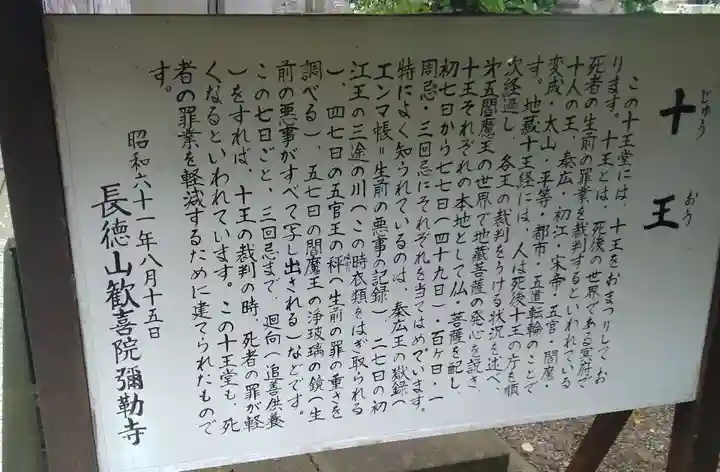 十王
じゅうおう
この十王堂には、十王をおまつりしてお
ります。十王とは、死後の世界である冥府で
死者の生前の罪業を裁判するといわれている
十人の王、秦広・初江・宋帝・五官・閻魔・
変成・太山・平等・都市・五道転輪のことで
す。地蔵十王経には、人は死後十王の庁を順
次経過し、各王の裁判をうける状況を述べ、
第五閻魔王の世界で地蔵菩薩の発心を説き、
十王それぞれの本地として仏・菩薩を配し、
初七日から七七日(四十九日)・百ヶ日・一
周忌・三回忌にそれぞれを当てはめています。
特によく知られているのは、秦広王の獄録(
エンマ帳=生前の悪事の記録)二七日の初
江王の三途の川(この時衣類をはぎ取られる
)、四七日の五官王の秤(生前の罪の重さを
調べる)、五七日の閻魔王の浄玻璃の鏡(生
前の悪事がすべて写し出される)などです。
この七日ごと、三回忌まで、廻向(追善供養
)をすれば、十王の裁判の時、死者の罪が軽
くなるといわれています。この十王堂も、死
者の罪業を軽減するために建てられたもので
す。
昭和六十一年八月十五日
長徳山歓喜院彌勒寺